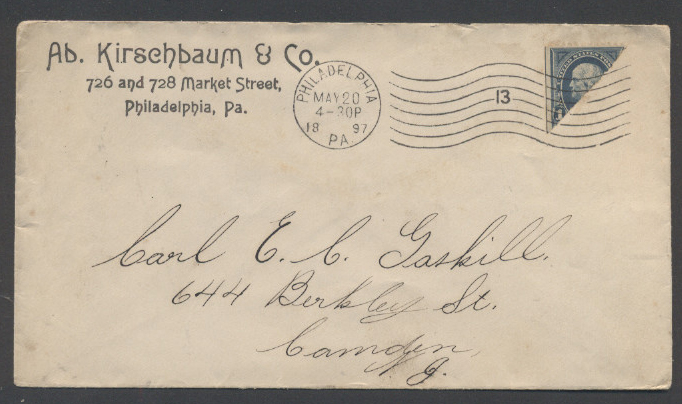 Ab. Kirschbaum & Co.
726 and 728 Market Street,
Philadelphia, Pa.
PHILADELPHIA
MAY 20
4-30P
18 97
PA.
13
Carl E. C. Gaskill.
644 Berkley St.
Camden,
N. J.